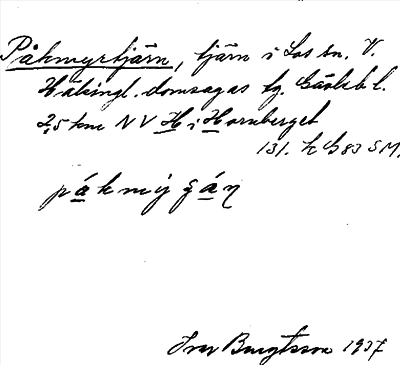 Påkmyrtjärn, tjärn i Los sn. V.
Hälsingl. domsagas tg. Gävleb. l.
2,5 km NV H i Hornberget
131. h G 83 SM.
påkmy
Ivar Bengtsson 1937